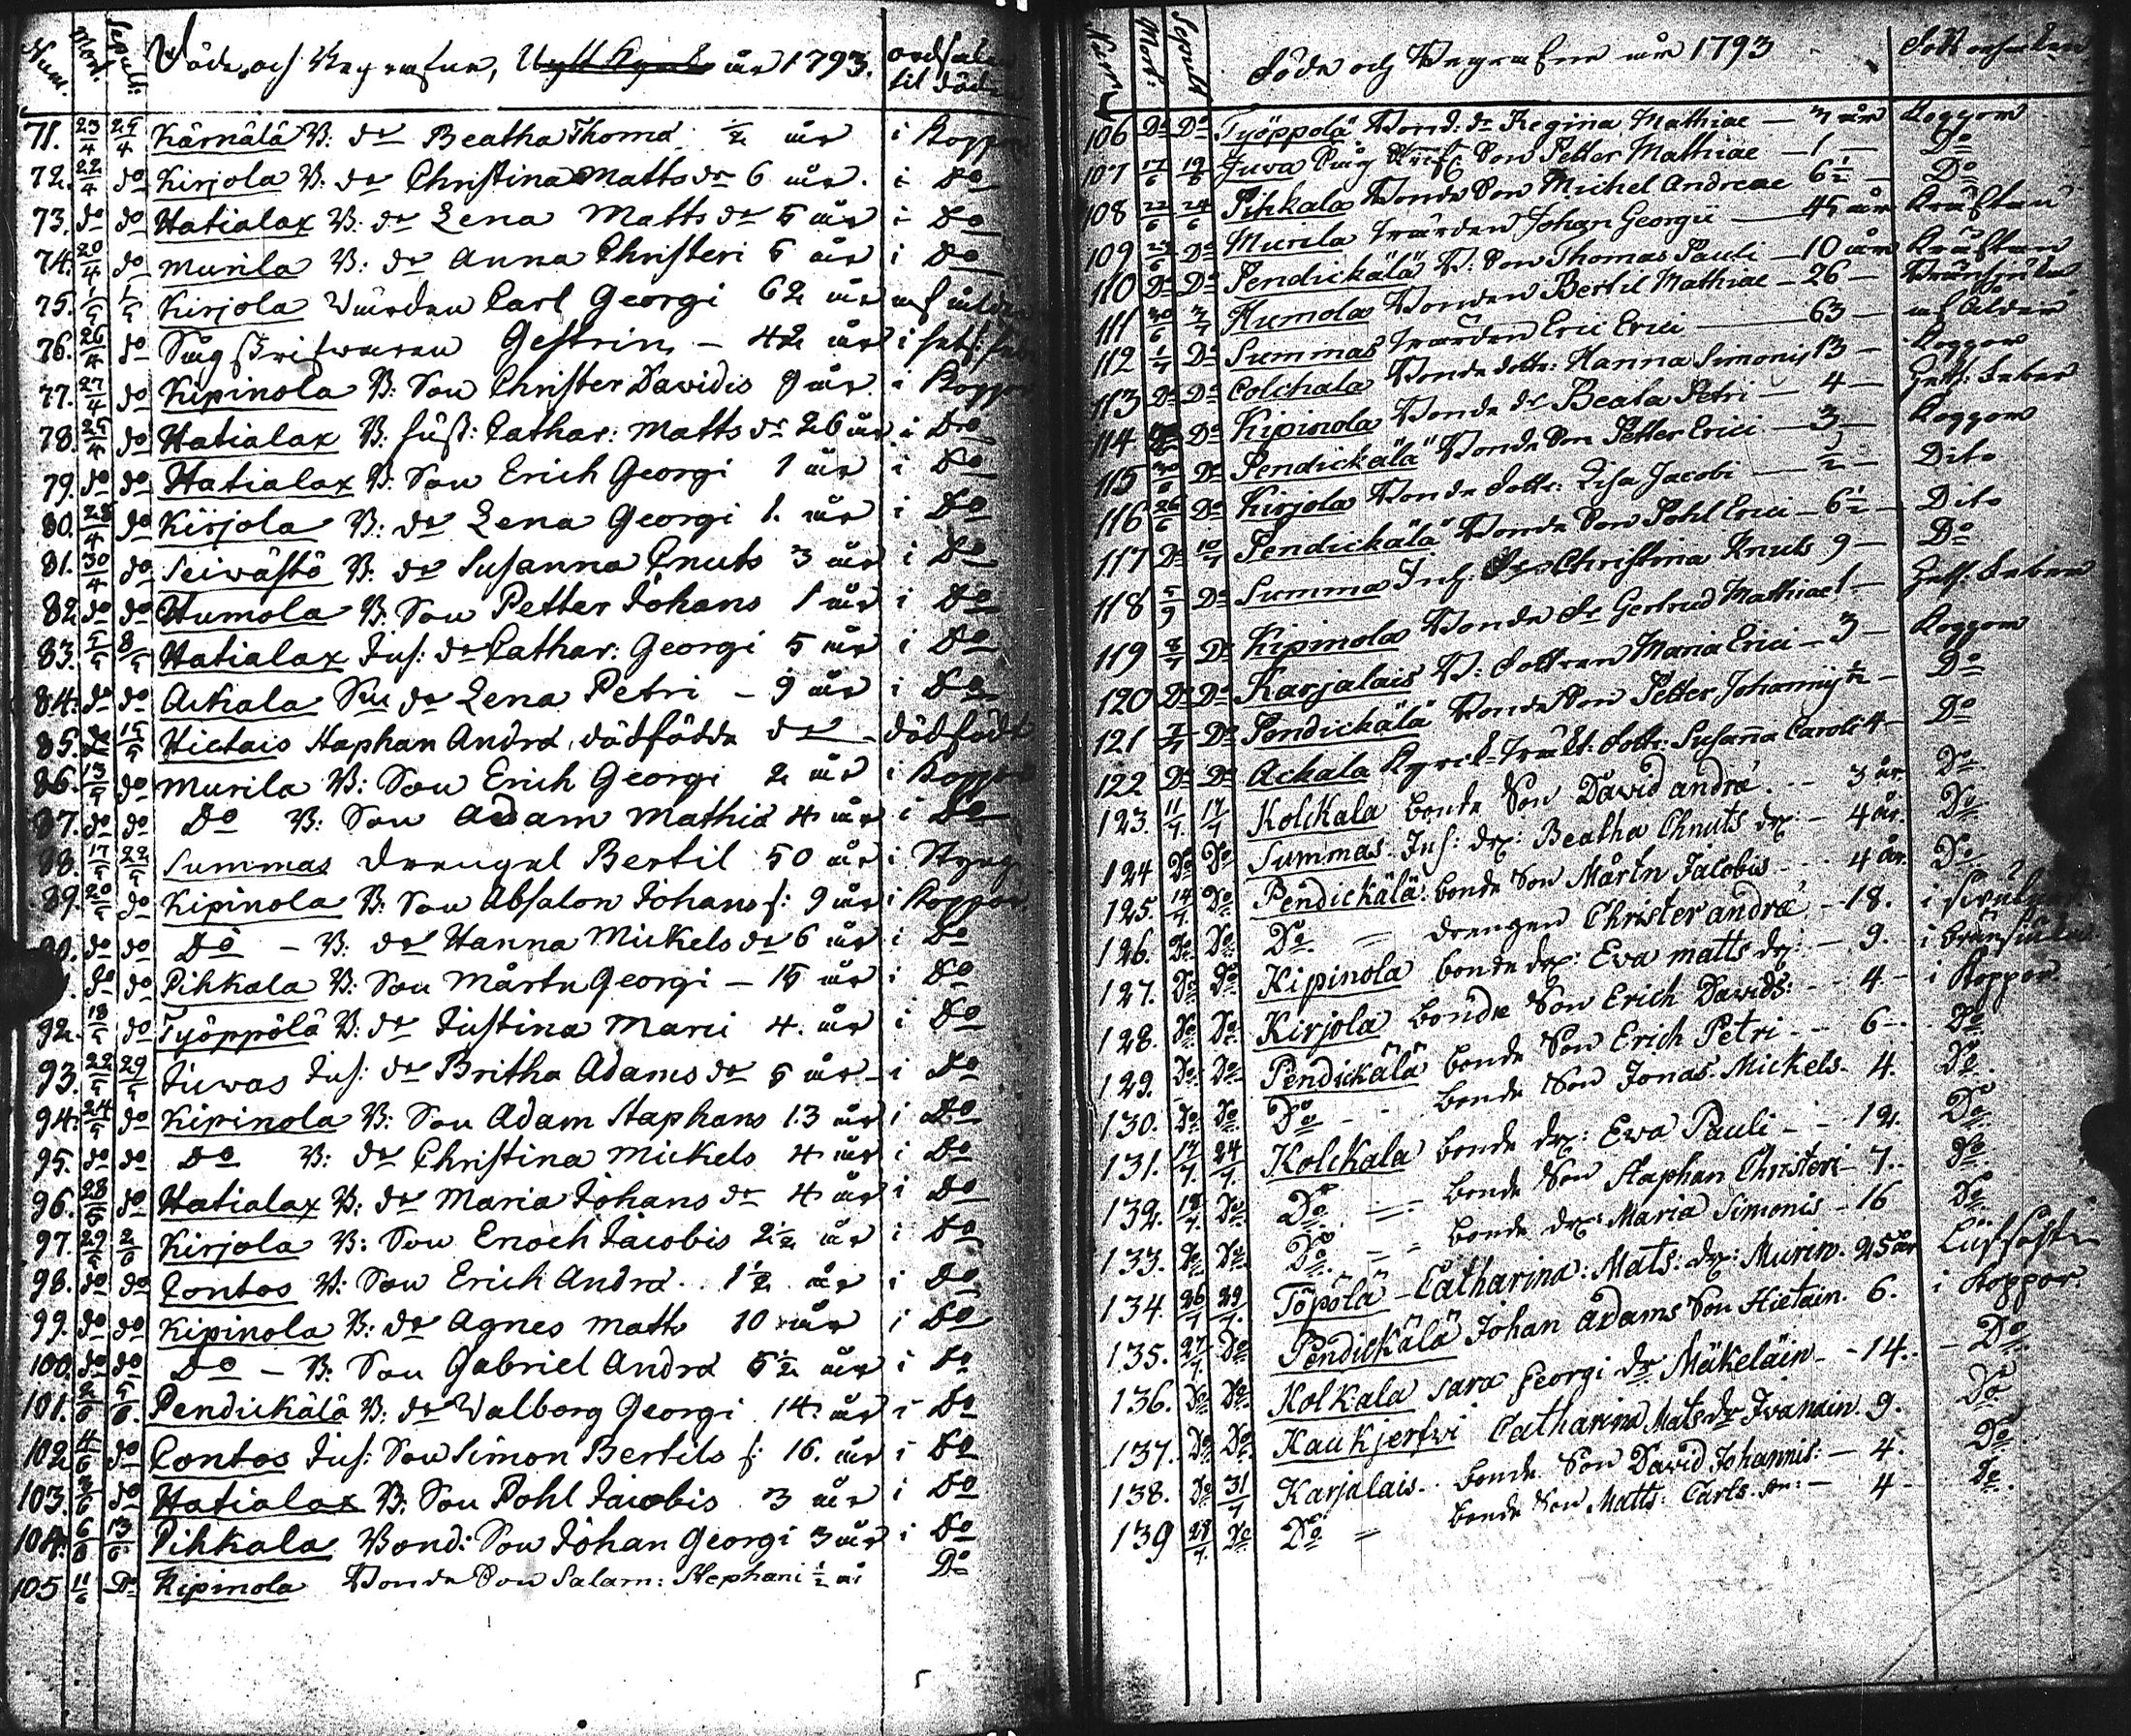 Num. Mort. Sepult: Döde och Begrafne, år 1793. ordsaken til döden
71. 23/4 25/4 Kärnälä B: dr Beatha Thomæ ½ år i Koppor
72. 22/4 do Kirjola B: dr Christina Matts dr 6 år. i Do
73. do do Hatialax B: dr Lena Matts dr 5 år i Do
74. 20/4 do Murila B: dr Anna Christeri 5 år i Do
75. 1/5 1/5 Kirjola Carl Georgi 62 år af ålder
76. 26/4 do Gestrin, - 42 år i
77. 27/4 do Kipinola B: Son Christer Davidis 9 år. i Koppor
78. 25/4 do Hatialax B: Cathar: Matts dr 26 år i Do
79. do do Hatialax B: Son Erich Georgi 1 år i Do
80. 28/4 do Kirjola B: dr Lena Georgi 1. år i Do
81. 30/4 do Seiwästö B: dr Susanna Cnuts 3 år i Do
82 do do Humola B: Son Petter Johans 1 år i Do
83. 5/5 8/5 Hatialax Inh: dr Cathar: Georgi 5 år i Do
84. do do Ackala dr Lena Petri - 9 år i Do
85. do 15/5 Hietais Staphan Andræ, dödfödde dr - dödfödt
86. 13/5 do Murila B: Son Erich Georgi 2 år i Koppor
87. do do Do B: Son Adam Mathiæ 4 år i Do
88. 17/5 22/5 Summas Bertil 50 år i
89. 20/5 do Kipinola B: Son Absalon Johans s: 9 år i Koppor.
90. do do Do - B: dr Hanna Mickels dr 6 år i Do
do do Pihkala B: Son Mårtn Georgi - 15 år i Do
92. 18/5 do Työppölä B: dr Justina Marci 4. år i Do
93. 22/5 29/5 Juwas Inh: dr Britha Adams dr 5 år - i Do
94. 24/5 do Kipinola B: Son Adam Staphans 13 år i Do
95. do do Do B: dr Christina Mickels 4 år i Do
96. 28/5 do Hatialax B: dr Maria Johans dr 4 år i Do
97. 29/5 2/6 Kirjola B: Son Enoch Jacobis 2½ år i Do
98. do do Contos B: Son Erich Andræ. 1½ år i Do
99. do do Kipinola B: dr Agnes Matts 10 år i Do
100. do do Do - B: Son Gabriel Andræ 5½ år i Do
101. 2/6 5/6. Pendickälä B: dr Walborg Georgi 14. år i Do
102 4/6 do Contos Inh: Son Simon Bertils s: 16. år i Do
103. 3/6 do Hatialax B: Son Pohl Jacobis 3 år i Do
104. 6/6 13/6 Pihkala Bond: Son Johan Georgi 3 år i Do
105 11/6 Do Kipinola Bonde Son Salam: Stephani ½ år Do
Mort: Sepult Döde och Begrafne år 1793
106 Do Do Työppölä Bond: dr Regina Mathiæ - 3 år Koppor
107 17/6 19/6 Juva Son Petter Mathiae - 1 - Do
108 22/6 24/6 Pihkala Bonde Son Michel Andreae 6½ - Do
109 Do Murila Johan Georgii - 45 år Kräftan
110 Do Do Pendickälä B: Son Thomas Pauli - 10 år Kräftan
111 30/6 3/7 Humola Bonden Bertil Mathiae - 26 -
112 1/7 Do Summas Eric Erici - 63 - af Ålder
113 Do Do Colchala Bonde dotte: Hanna Simonis 13 - Koppor
114 Do Kipinola Bonde dr Beata Petri - 4 - Hett: Feber
115 30/6 Do Pendickälä Bonde Son Petter Erici - 3 - Koppor
116 26/6 Do Kirjola Bonde dotte: Lisa Jacobi - ½ - Dito
117 Do 10/7 Pendickälä Bonde Son Pohl Erici - 6½ - Dito
118 5/7 Do Summa Inh: Christina Knuts 9 - Do
119 8/7 Do Kipinola Bonde dr Gertrud Mathiae 1 - Hett: Feber
120 Do Do Karjalais B: dottren Maria Erici - 3 - Koppor
121 Do Pendickälä Bonde Son Petter Johannis ½ - Do
122 Do Do Ackala dotte: Susanna Caroli 4 - Do
123. 11/7 17/7 Kolckala bonde Son David andræ. - 3 år Do
124 Do Do Summas Inh: dr: Beatha Chnuts dr: - 4 år. Do
125. 14/7 Do Pendickälä: bonde Son Mårtn Jacobis - 4 år. Do
126. Do Do Do = drengen Christer andræ - 18. i
127. Do Do Kipinola bonde dr: Eva matts dr: - 9. i
128. Do Do Kirjola bonde Son Erich Davids: - 4. i Koppor
129. Do Do Pendickälä bonde Son Erich Petri - 6 - Do
130. Do Do Do - bonde Son Jonas Mickels - 4. Do
131. 17/7 24/7 Kolckala bonde dr: Ewa Pauli - 12. Do
132. 19/7 Do Do = bonde Son Staphan Christeri - 7. Do
133. Do Do Do = bonde dr: Maria Simonis - 16 Do
134. 26/7 29/7 Töpölä - Catharina: Mats: dr: Murin. 25 år
135. 27/7 Do Pendickälä Johan Adams Son Hietain. 6. i Koppor
136. Do Do Kolkala Sara Georgi dr Mäkeläin - 14. - Do
137. Do Do Kaukjerfwi Catharina Mats dr Ivanain. 9. Do
138. Do 31/7 Karjalais. bonde Son David Johannis: - 4. Do
139 28/7 Do Do = bonde Son Matts: Carls son: - 4 - Do